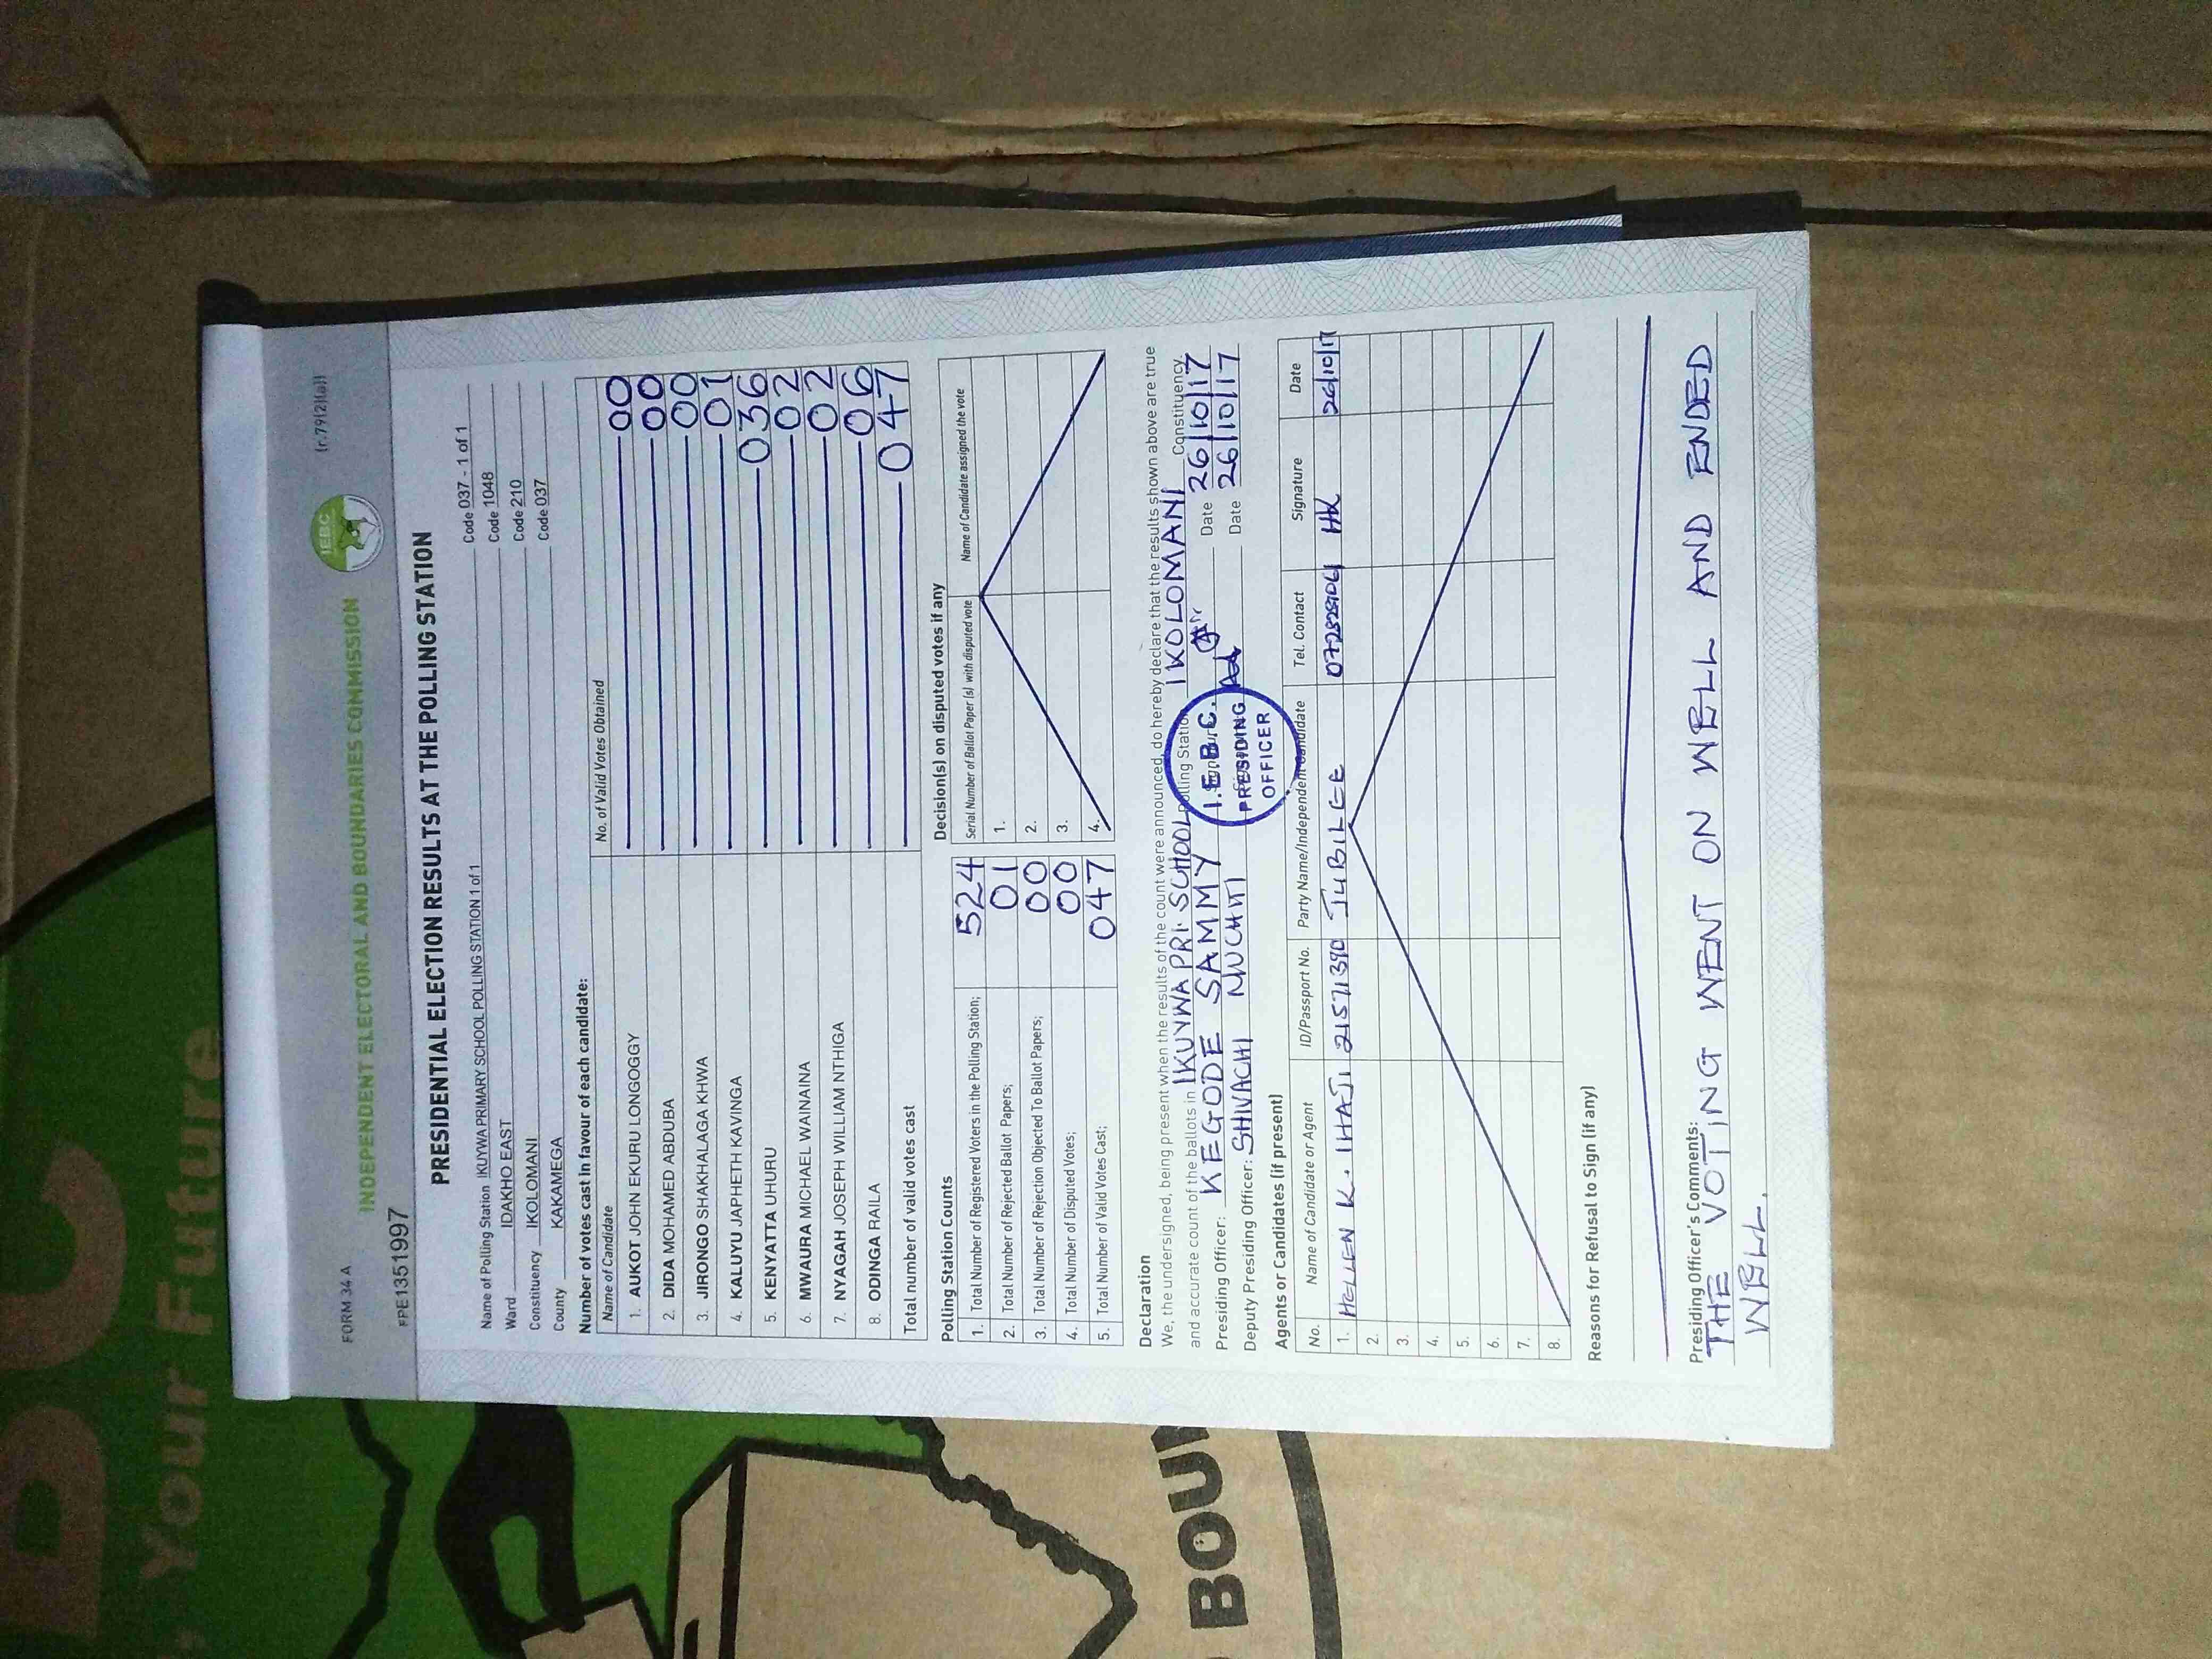 FORM 34 A
(r.79(2)(a))
IEBC
INDEPENDENT ELECTORAL AND BOUNDARIES COMMISSION
FPE1351997
PRESIDENTIAL ELECTION RESULTS AT THE POLLING STATION
Name of Polling Station IKUYWA PRIMARY SCHOOL POLLING STATION 1 of 1 Code 037 - 1 of 1
Ward IDAKHO EAST Code 1048
Constituency IKOLOMANI Code 210
County KAKAMEGA Code 037
Number of votes cast in favour of each candidate:
Name of Candidate No. of Valid Votes Obtained
1. AUKOT JOHN EKURU LONGOGGY 00
2. DIDA MOHAMED ABDUBA 00
3. JIRONGO SHAKHALAGA KHWA 00
4. KALUYU JAPHETH KAVINGA 01
5. KENYATTA UHURU 036
6. MWAURA MICHAEL WAINAINA 02
7. NYAGAH JOSEPH WILLIAM NTHIGA 02
8. ODINGA RAILA 06
Total number of valid votes cast 047
Polling Station Counts
1. Total Number of Registered Voters in the Polling Station; 524
2. Total Number of Rejected Ballot Papers; 01
3. Total Number of Rejection Objected To Ballot Papers; 00
4. Total Number of Disputed Votes; 00
5. Total Number of Valid Votes Cast; 047
Decision(s) on disputed votes if any
Serial Number of Ballot Paper (s) with disputed vote Name of Candidate assigned the vote
1.
2.
3.
4.
Declaration
We, the undersigned, being present when the results of the count were announced, do hereby declare that the results shown above are true
and accurate count of the ballots in IKUYWA PRI. SCHOOL Polling Station IKOLOMANI Constituency.
Presiding Officer: KEGODE SAMMY Date 26/10/17
Deputy Presiding Officer: SHIVACHI Date 26/10/17
I.E.B.C.
PRESIDING
OFFICER
Agents or Candidates (if present)
No. Name of Candidate or Agent ID/Passport No. Party Name/Independent Candidate Tel. Contact Signature Date
1. HELLEN K. IHAJI 21571390 JUBILEE 26/10/17
2.
3.
4.
5.
6.
7.
8.
Reasons for Refusal to Sign (if any)
Presiding Officer's Comments:
THE VOTING WENT ON WELL AND ENDED
WELL.
Your Future
BOU